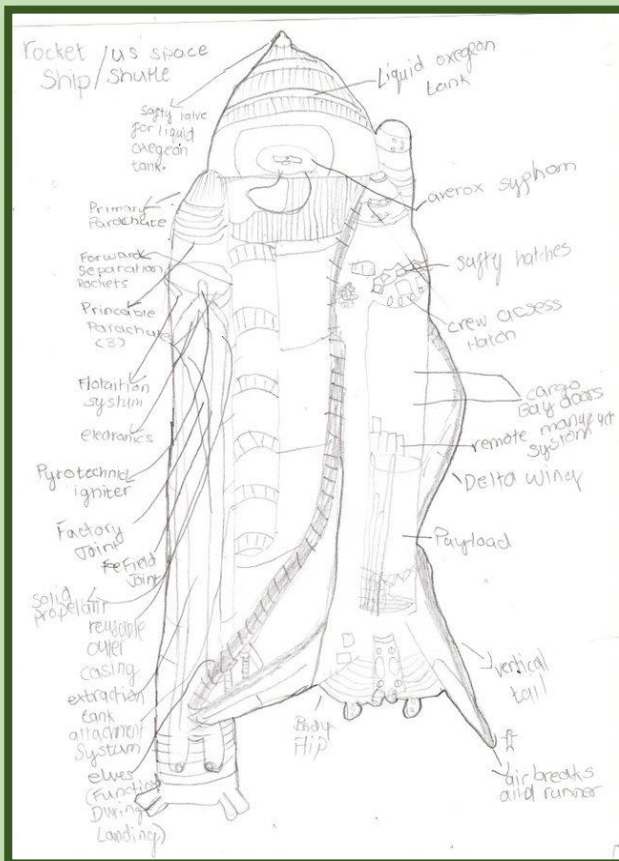 rocket / us space
Ship / Shutle
Safty valve
for liquid
oxegean
tank.
Primary
Parachute
Forward
Separation
Rockets
Princable
Parachute
(3)
Flotaition
system
electronics
Pyrotechnic
igniter
Factory
Joint
Field
Joint
Solid
propelant
reusable
outer
casing
extraction
tank
attachment
System
(Function
During
Landing)
Liquid oxegeon
tank
averox syphom
safty hatches
crew acsess
Hatch
cargo
Bay doors
remote
system
Delta wing
Payload
vertical
tail
air breaks
and runner
Body
Flip